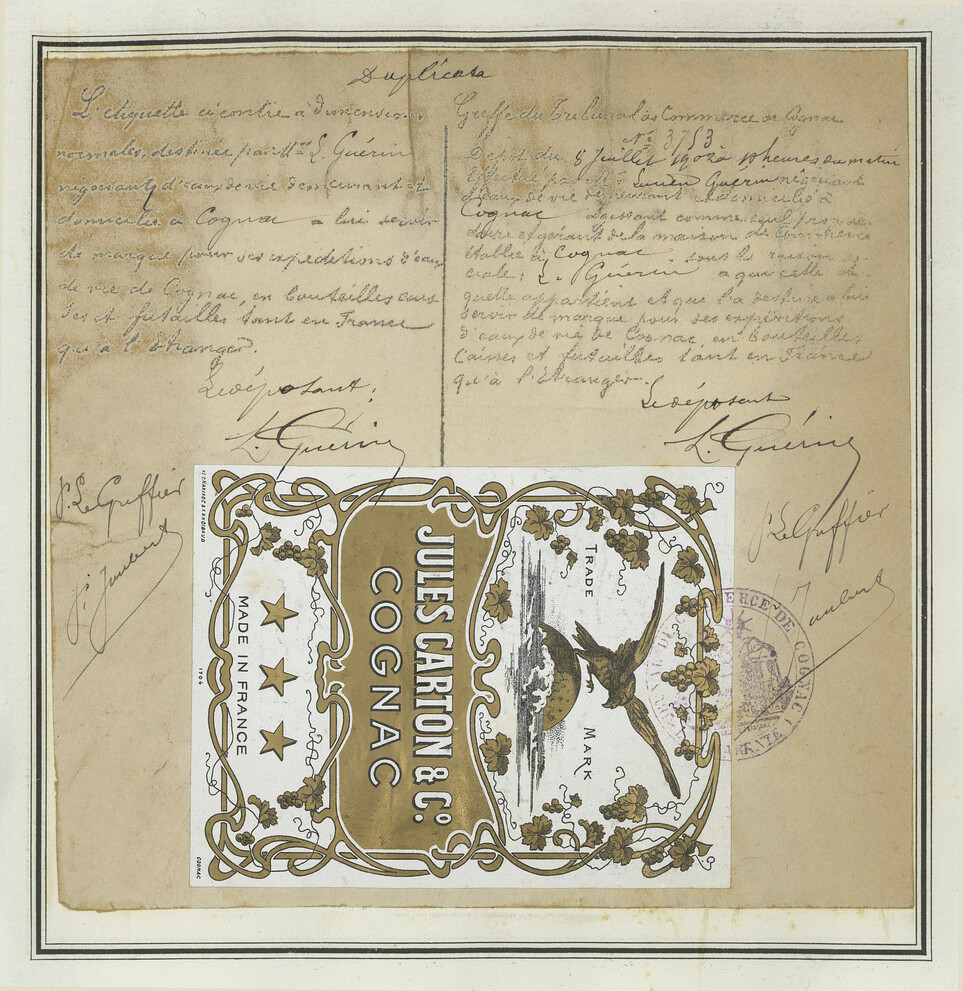 Duplicata
L'étiquette ci contre à dimensions
normales, destinée par Mr L. Guérin
négociant d'eaux de vie demeurant et
domicilié à Cognac a lui servir
de marque pour ses expéditions d'eaux
de vie de Cognac, en bouteilles cais
ses et futailles tant en France
qu'à l'étranger.
Le déposant:
L. Guérin
P. Le Greffier
Greffe du Tribunal de Commerce de Cognac
No 3753
Dépôt du 8 Juillet 1902 à 10 heures du matin
effectué par Mr Lucien Guérin négociant
d'eaux de vie demeurant et domicilié à
Cognac agissant comme seul proprié
taire et gérant de la maison de Commerce
établie à Cognac sous la raison so
ciale: L. Guérin a qui cette éti
quette appartient et que l'a destine a lui
servir de marque pour ses expéditions
d'eaux de vie de Cognac, en bouteilles
Caisses et futailles tant en France
qu'à l'Etranger.
Le déposant
L. Guérin
P. Le Greffier
TRADE MARK
JULES CARTON & Co
COGNAC
MADE IN FRANCE
1704
COGNAC
COMMERCE DE COGNAC